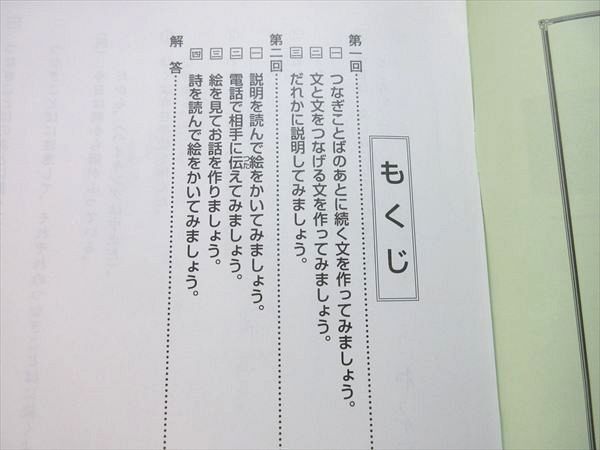 もくじ
第一回
一 つなぎことばのあとに続く文を作ってみましょう。
二 文と文をつなげる文を作ってみましょう。
三 だれかに説明してみましょう。
第二回
一 説明を読んで絵をかいてみましょう。
二 電話で相手に伝えてみましょう。
つた
三 絵を見てお話を作りましょう。
四 詩を読んで絵をかいてみましょう。
解答